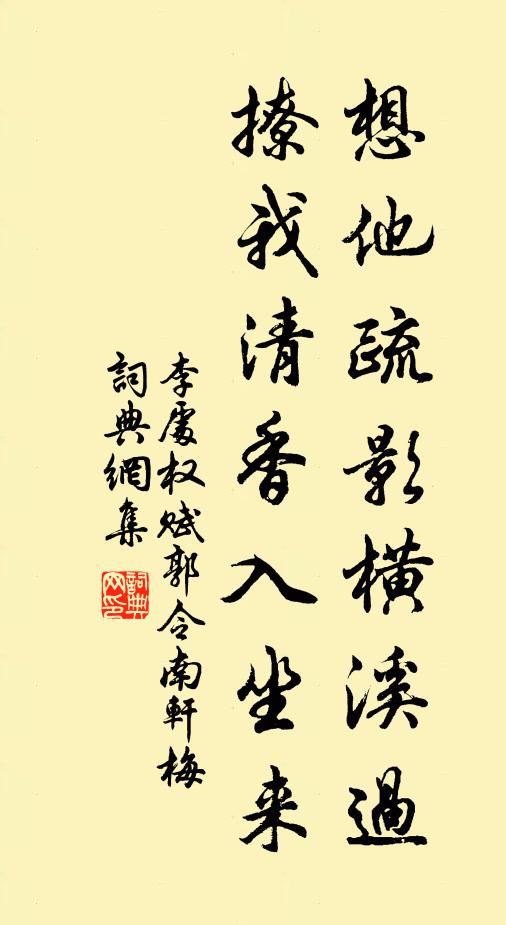 想他疏影橫溪過
撩我清香入坐来
李處权赋郭令南軒梅
詞典網集
詞典網印